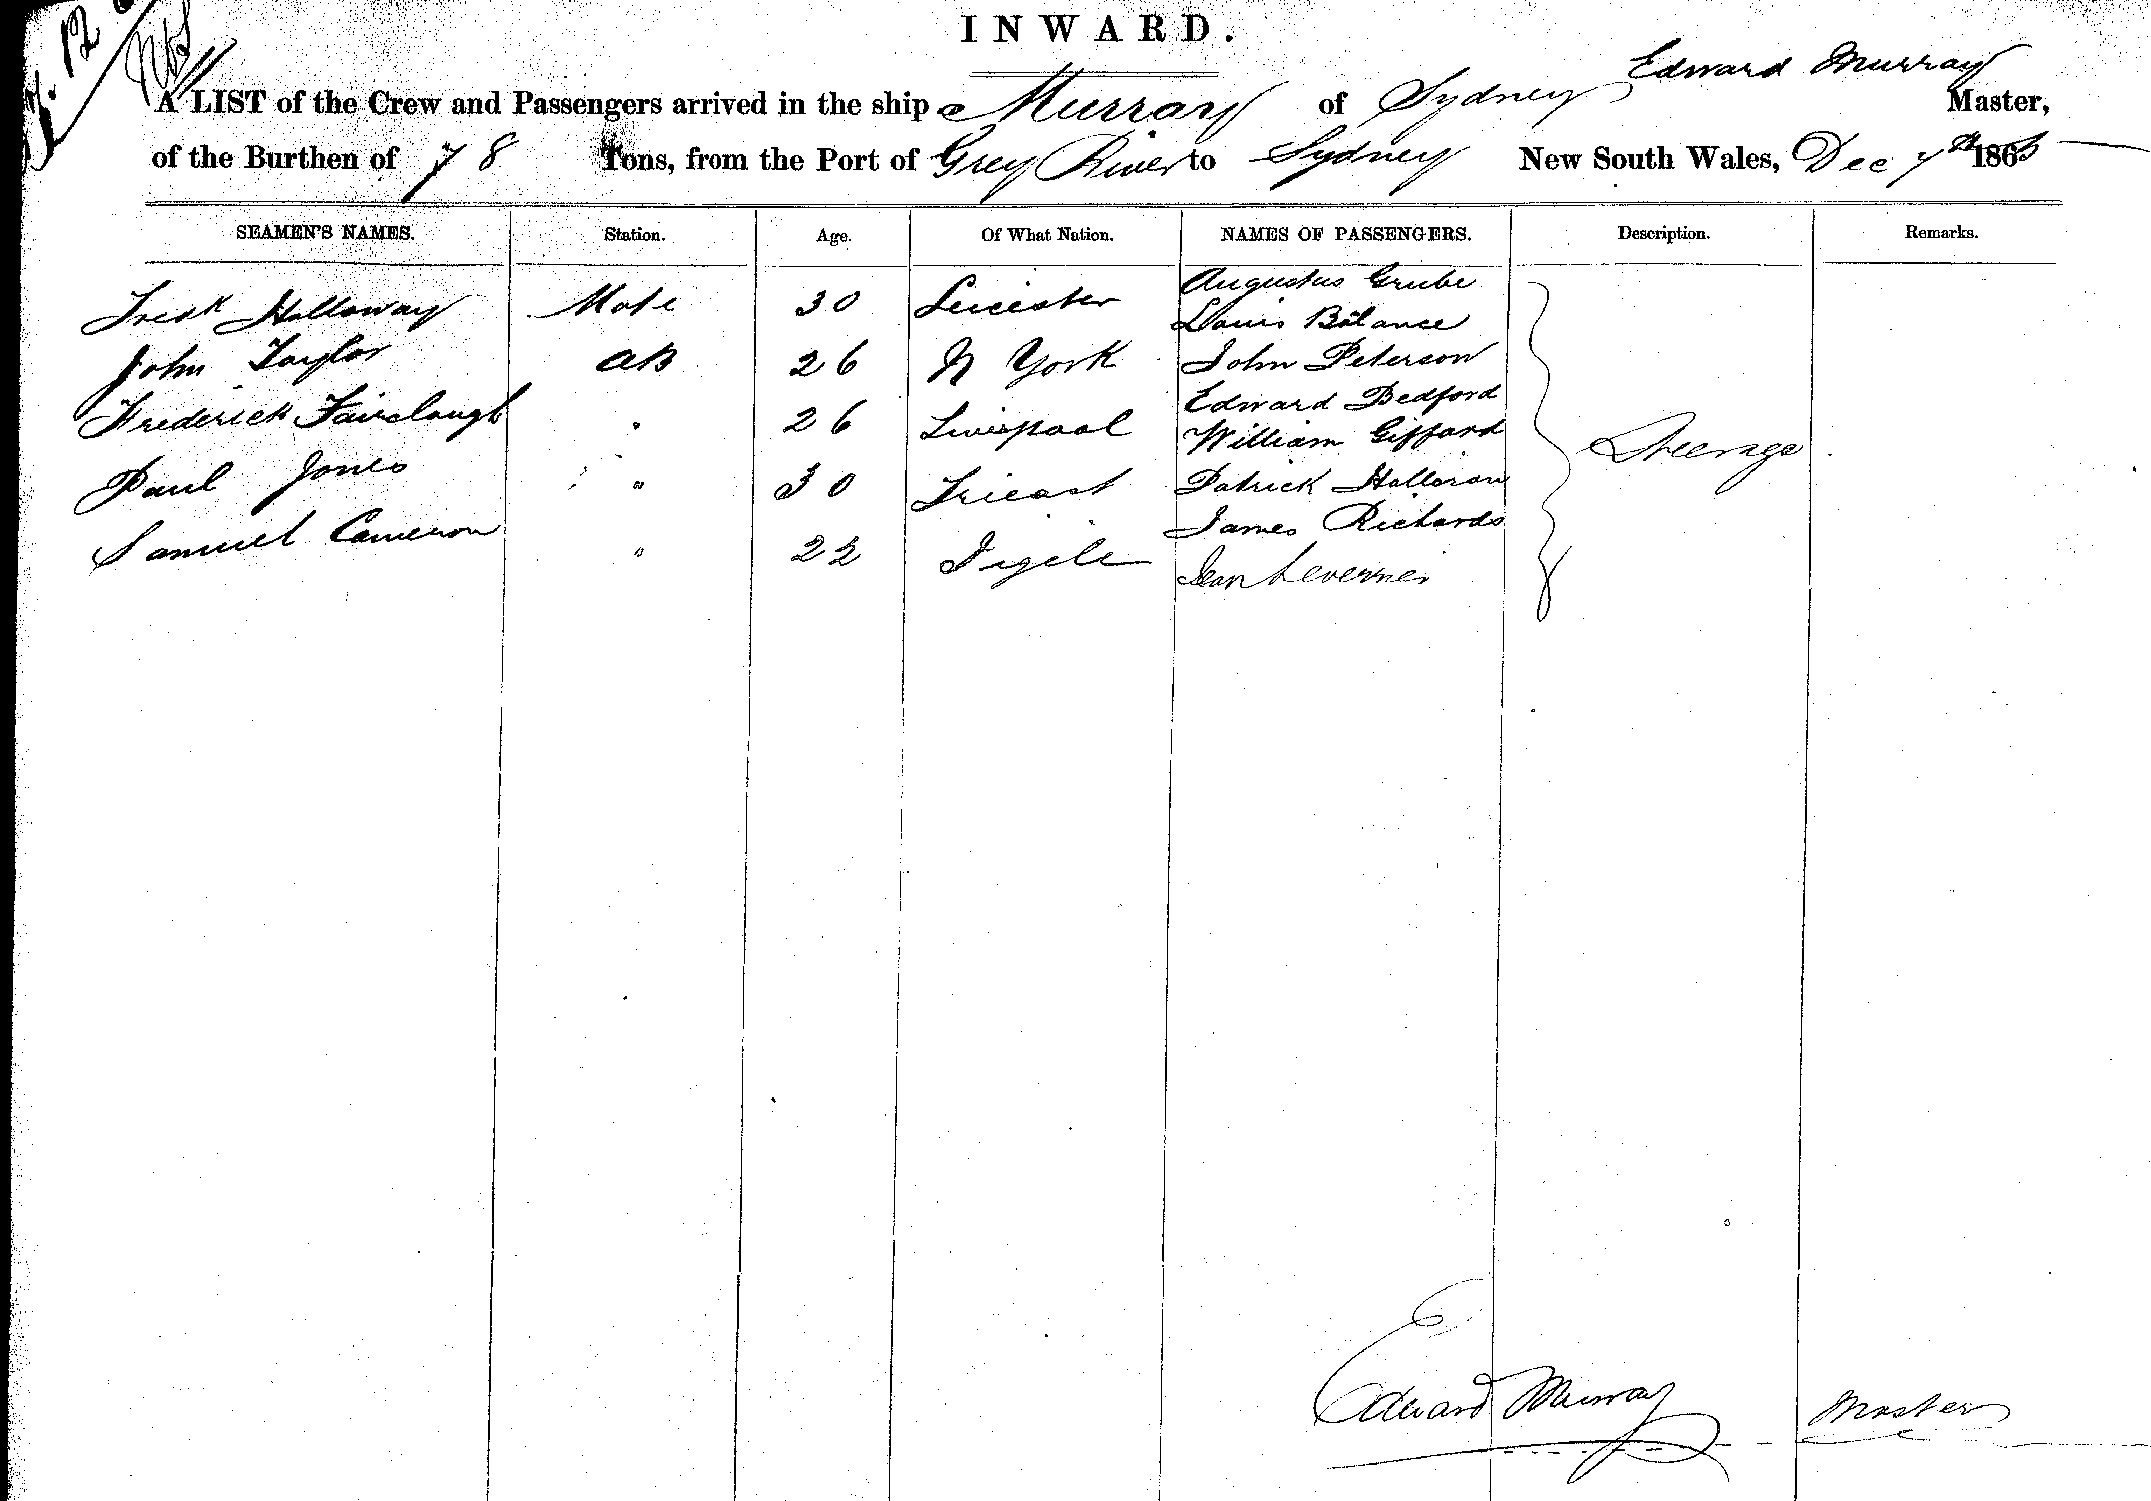 INWARD.
Edward Murray
A LIST of the Crew and Passengers arrived in the ship Murray of Sydney Master,
of the Burthen of 78 Tons, from the Port of Grey River to Sydney New South Wales, Dec 7th 1865
SEAMEN'S NAMES. Station. Age. Of What Nation. NAMES OF PASSENGERS. Description. Remarks.
Augustus Grube
Fredk Holloway Mate 30 Leicester
Louis Balance
John Taylor AB 26 N York John Peterson
Edward Bedford
Frederick Fairclough " 26 Liverpool William Giffard Steerage
Paul Jones " 30 Patrick Halloran
James Richards
Samuel Cameron " 22
Jean
Edward Murray Master